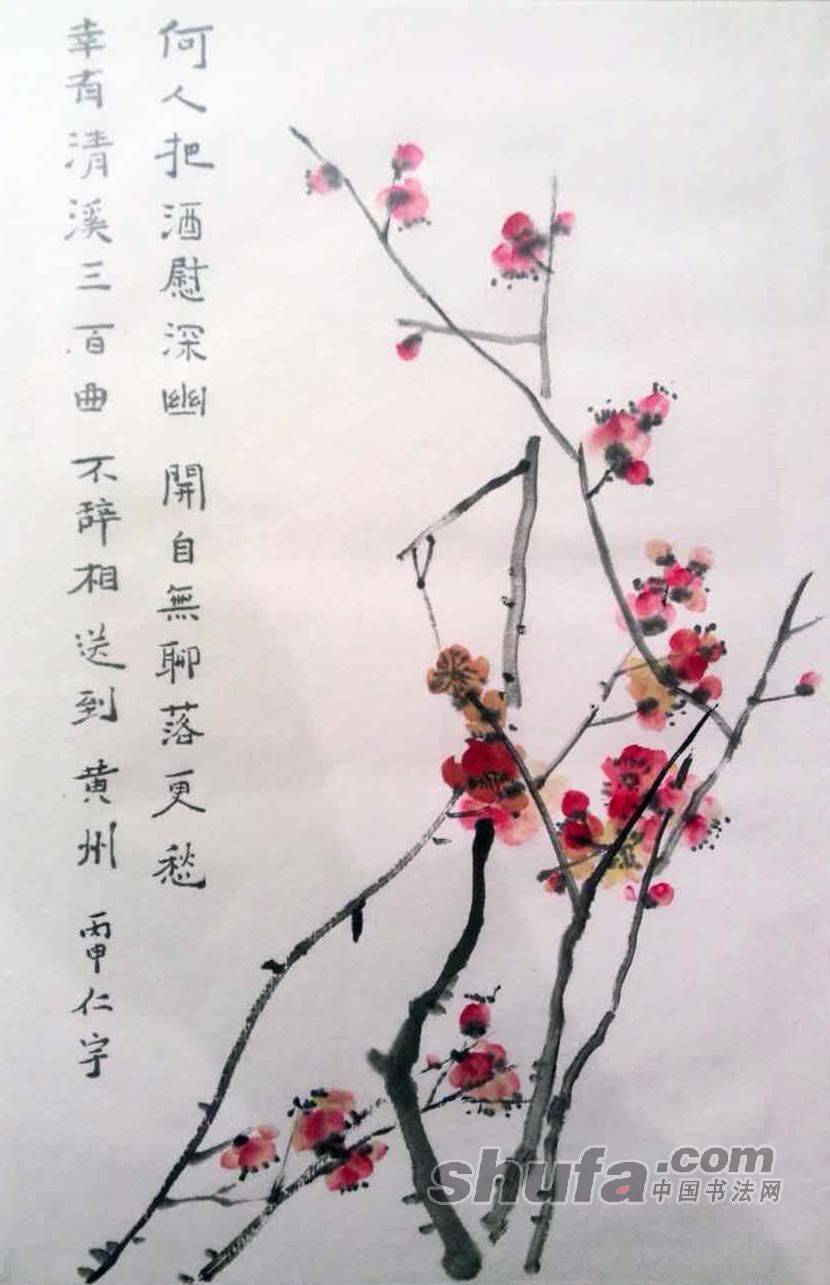 何人把酒慰深幽 開自無聊落更愁
幸有清溪三百曲 不辞相送到黄州 丙申仁宇
shufa.com
中国书法网